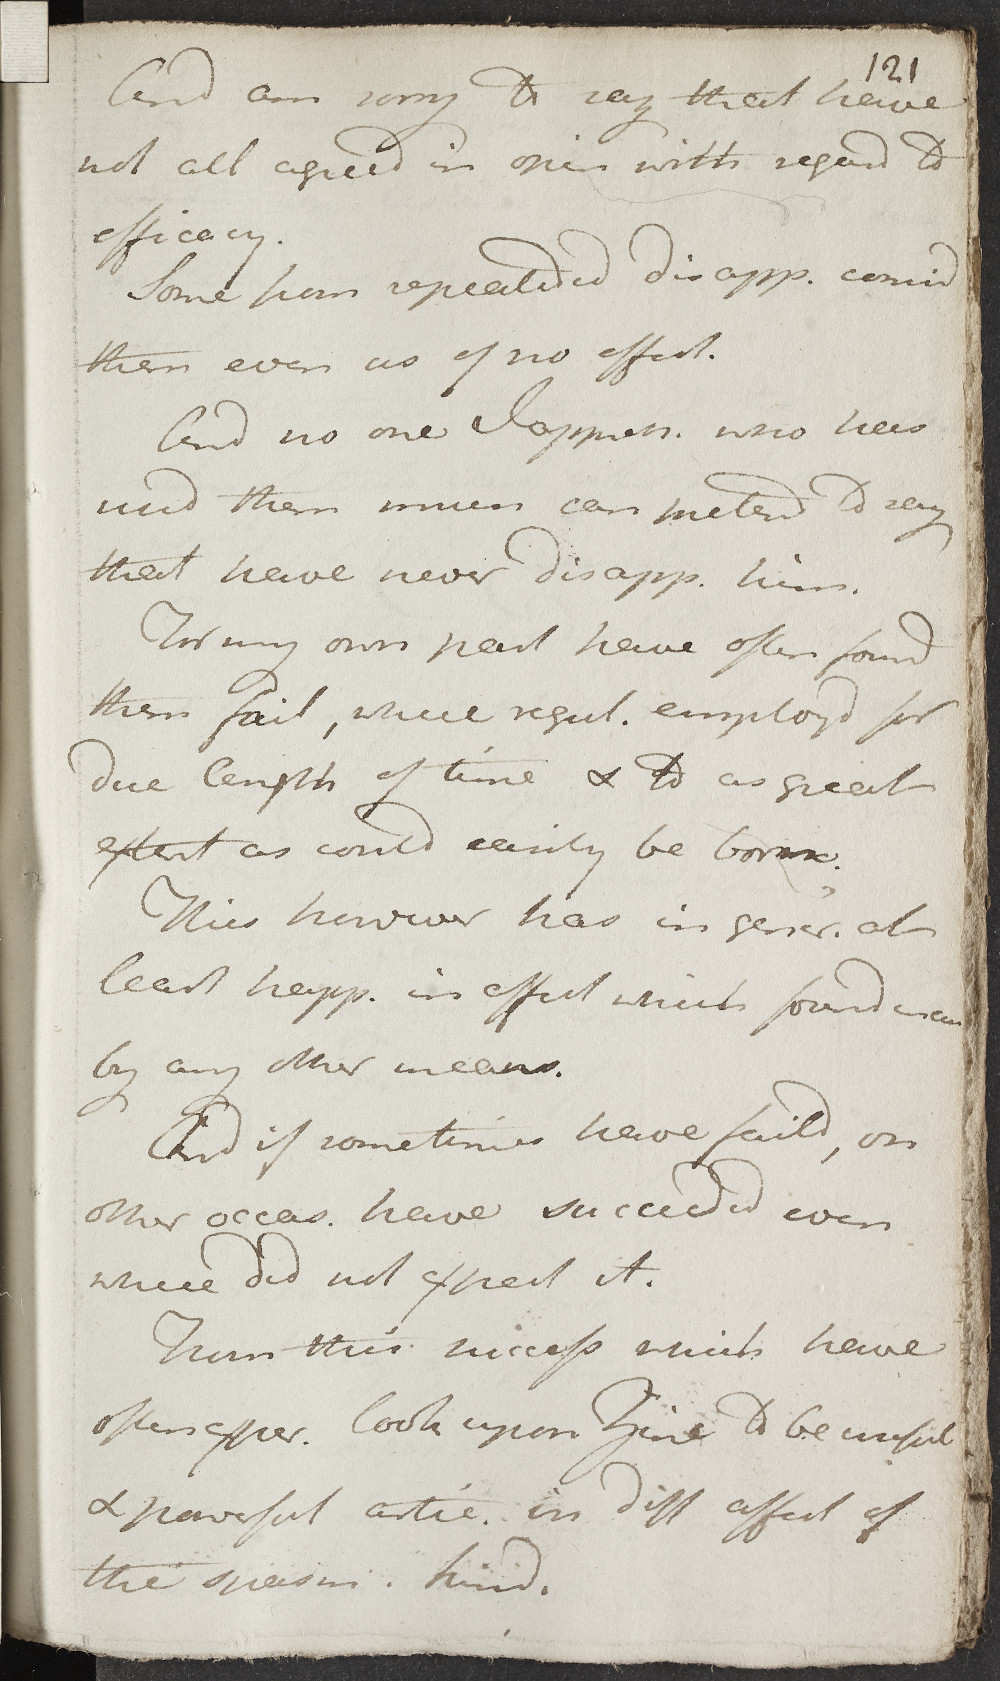 121
And am sorry to say that have
not all agreed in opin with regard to
efficacy.
Some from repeateded disapp. consid
them even as of no effect.
And no one I appreh. who has
used them much can pretend to say
that have never disapp. him.
For my own part have often found
them fail, where regul. employd for
due length of time & to as great
extent as could easily be born.
This however has in gener. at
least happ. in affect which found
by any other means.
And if sometimes have faild, on
other occas. have succeeded even
where did not expect it.
From this success which have
often exper. look upon Zinc to be useful
& powerful artic. in diff affect of
the spasm. kind.